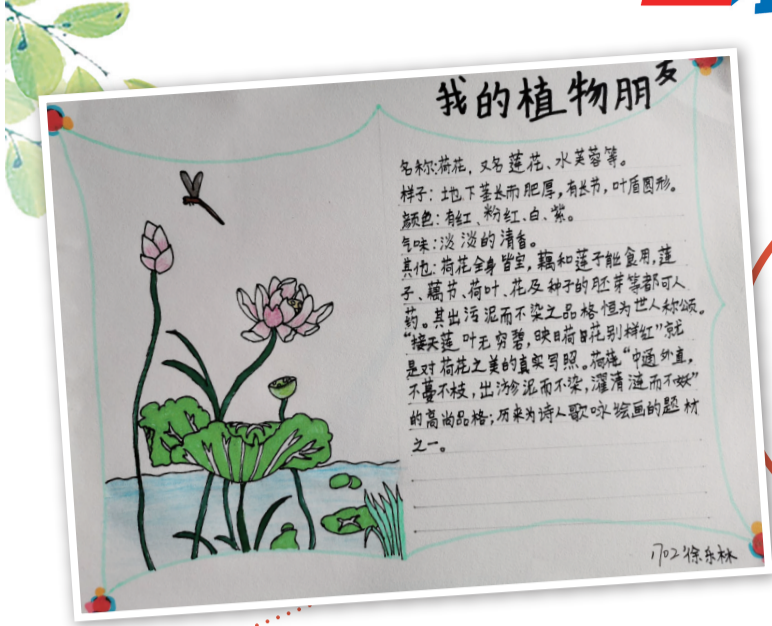 我的植物朋友
名称:荷花,又名莲花、水芙蓉等。
样子:地下茎长而肥厚,有长节,叶盾圆形。
颜色:有红、粉红、白、紫。
气味:淡淡的清香。
其他:荷花全身皆宝,藕和莲子能食用,莲
子、藕节、荷叶、花及种子的胚芽等都可入
药。其出污泥而不染之品格恒为世人称颂。
“接天莲叶无穷碧,映日荷日花别样红”就
是对荷花之美的真实写照。荷花“中通外直,
不蔓不枝,出淤泥而不染,濯清涟而不妖”
的高尚品格;历来为诗人歌咏绘画的题材
之一。
1702徐乐林